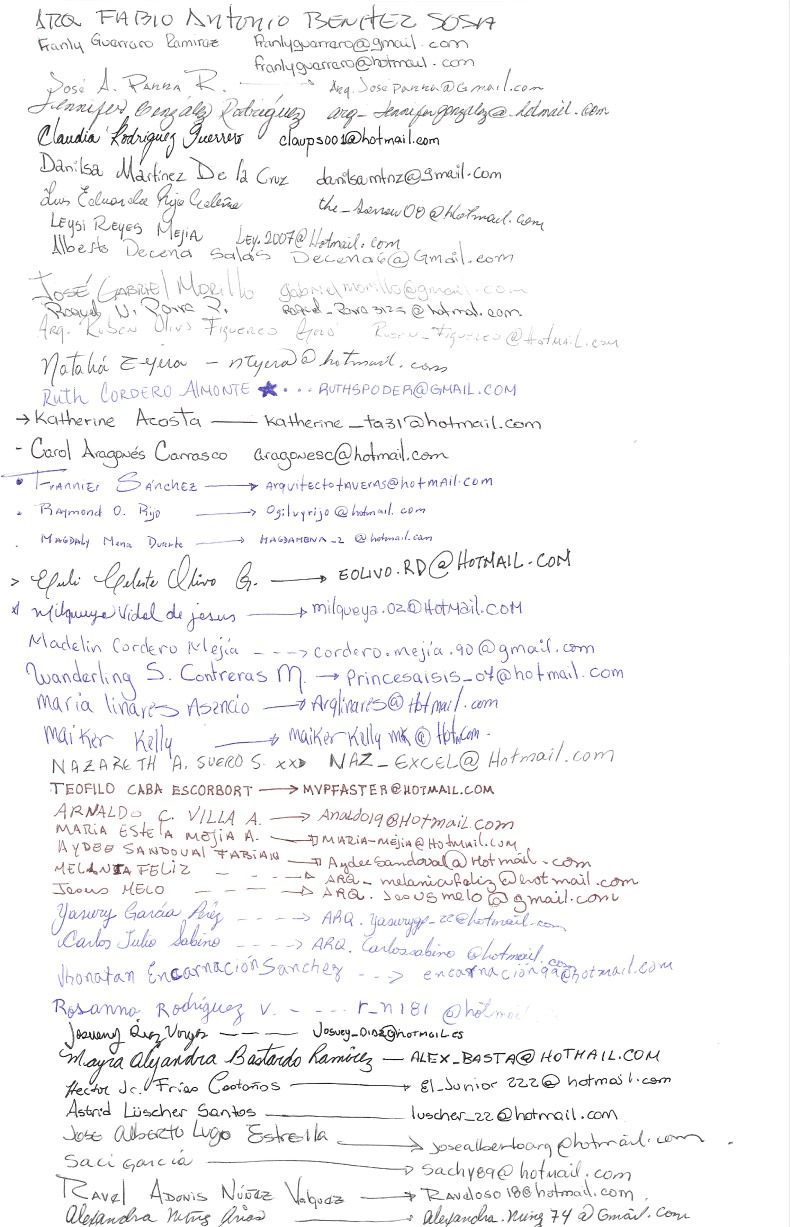 ARQ FABIO Antonio BENITEZ SOSA
Franly Guerraro Ramirez franlyguerraro@gmail.com
franlyguerraro@hotmail.com
José A. PARRA R. Arq.JoséPARRA@Gmail.com
Jennifer González Rodríguez arq-Jennifergonzalez@hotmail.com
Claudia Rodriguez Guerrero claups001@hotmail.com
Danilsa Mártinez De la Cruz danilsamtnz@gmail.com
Luis Eduardo Rijo the_sorrow00@Hotmail.com
Leysi Reyes Mejia Ley.2007@Hotmail.com
Alberto Decena Salas Decena6@Gmail.com
JOSÉ GABRIEL MORILLO gabrielmorillo@gmail.com
Raquel N. P. @hotmail.com
Arq. Ruben Figuereo @HOTMAIL.com
Natahá E-yera - ntyera@hotmail.com
Ruth CORDERO AlMONTE ★... RUTHSPODER@GMAIL.COM
→ Katherine Acosta — katherine_ta31@hotmail.com
- Carol Aragonés Carrasco aragonesc@hotmail.com
• Frannier Sánchez → ArquitectotAverAs@hotmAil.com
. Raymond O. Rijo → Ogilvyrijo@hotmail.com
. MAGDALY Mena Duarte → MAGDAMENA_2@hotmail.com
> Celeste Olivo G. → EOLIVO.RD@HOTMAIL.COM
Milqueya Vidal de jesus → milqueya.02@HOtMail.COM
Madelin Cordero Mejía ---> cordero.mejia.90@gmail.com
Wanderling S. Contreras M. → Princesaisis_07@hotmail.com
María linares Asencio → Arqlinares@Hotmail.com
Maiker Kelly → Maiker Kelly MK @ Hot.com.
NAZARETH A. SUERO S. xxD NAZ_EXCEL@Hotmail.com
TEOFILO CABA ESCORBORT → MVPFASTER@HOTMAIL.COM
ARNALDO C. VILLA A. → Analdo19@HOTmail.com
MARIA ESTELA MEJIA A. → MARIA-MEJIA@HOTMAIL.COM
AYDEE SANDOVAL FABIAN → AydeeSandoval@Hotmail.com
MELANIA FELIZ ---> ARQ_melaniafeliz@hotmail.com
Jesus MELO ---> ARQ.Jesusmelo@gmail.com
Yasury García Pérez ----> @hotmail.com
Carlos Julio Sabino ----> ARQ.Carlossabino@hotmail.com
Jhonatan Encarnación Sanchez ---> encarnación99@hotmail.com
Rosanna Rodríguez V. ---- r_n181@hotmail
@HOTMAIL.ES
Mayra Alejandra Bastardo Ramírez — ALEX_BASTA@HOTMAIL.COM
Hector Jr. Frías Castaños → El_Junior 222@hotmail.com
Astrid Lüscher Santos — luscher_22@hotmail.com
Jose Alberto Lugo Estrella → josealbertoarq@hotmail.com
Saci García → Sachy89@hotmail.com
Ravel Adonis Núñez Vasquez → Raveloso18@hotmail.com.
Alejandra → Alejandra.Nung74@Gmail.Com